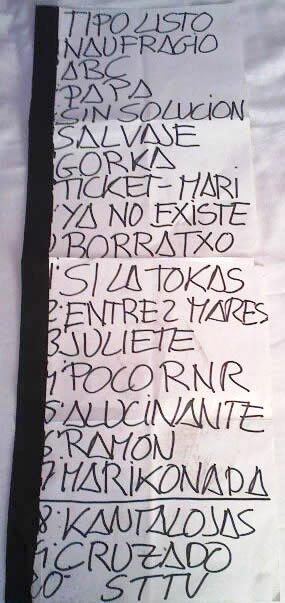 TIPO LISTO
NAUFRAGIO
ABC
PAPA
SIN SOLUCION
SALVAJE
GORKA
TICKET-MARI
YA NO EXISTE
BORRATXO
SI LA TOKAS
2: ENTRE 2 MARES
3 JULIETE
4: POCO RNR
5 ALUCINANTE
6: RAMON
7 MARIKONADA
8: KANTALOJAS
9: CRUZADO
20 STTV